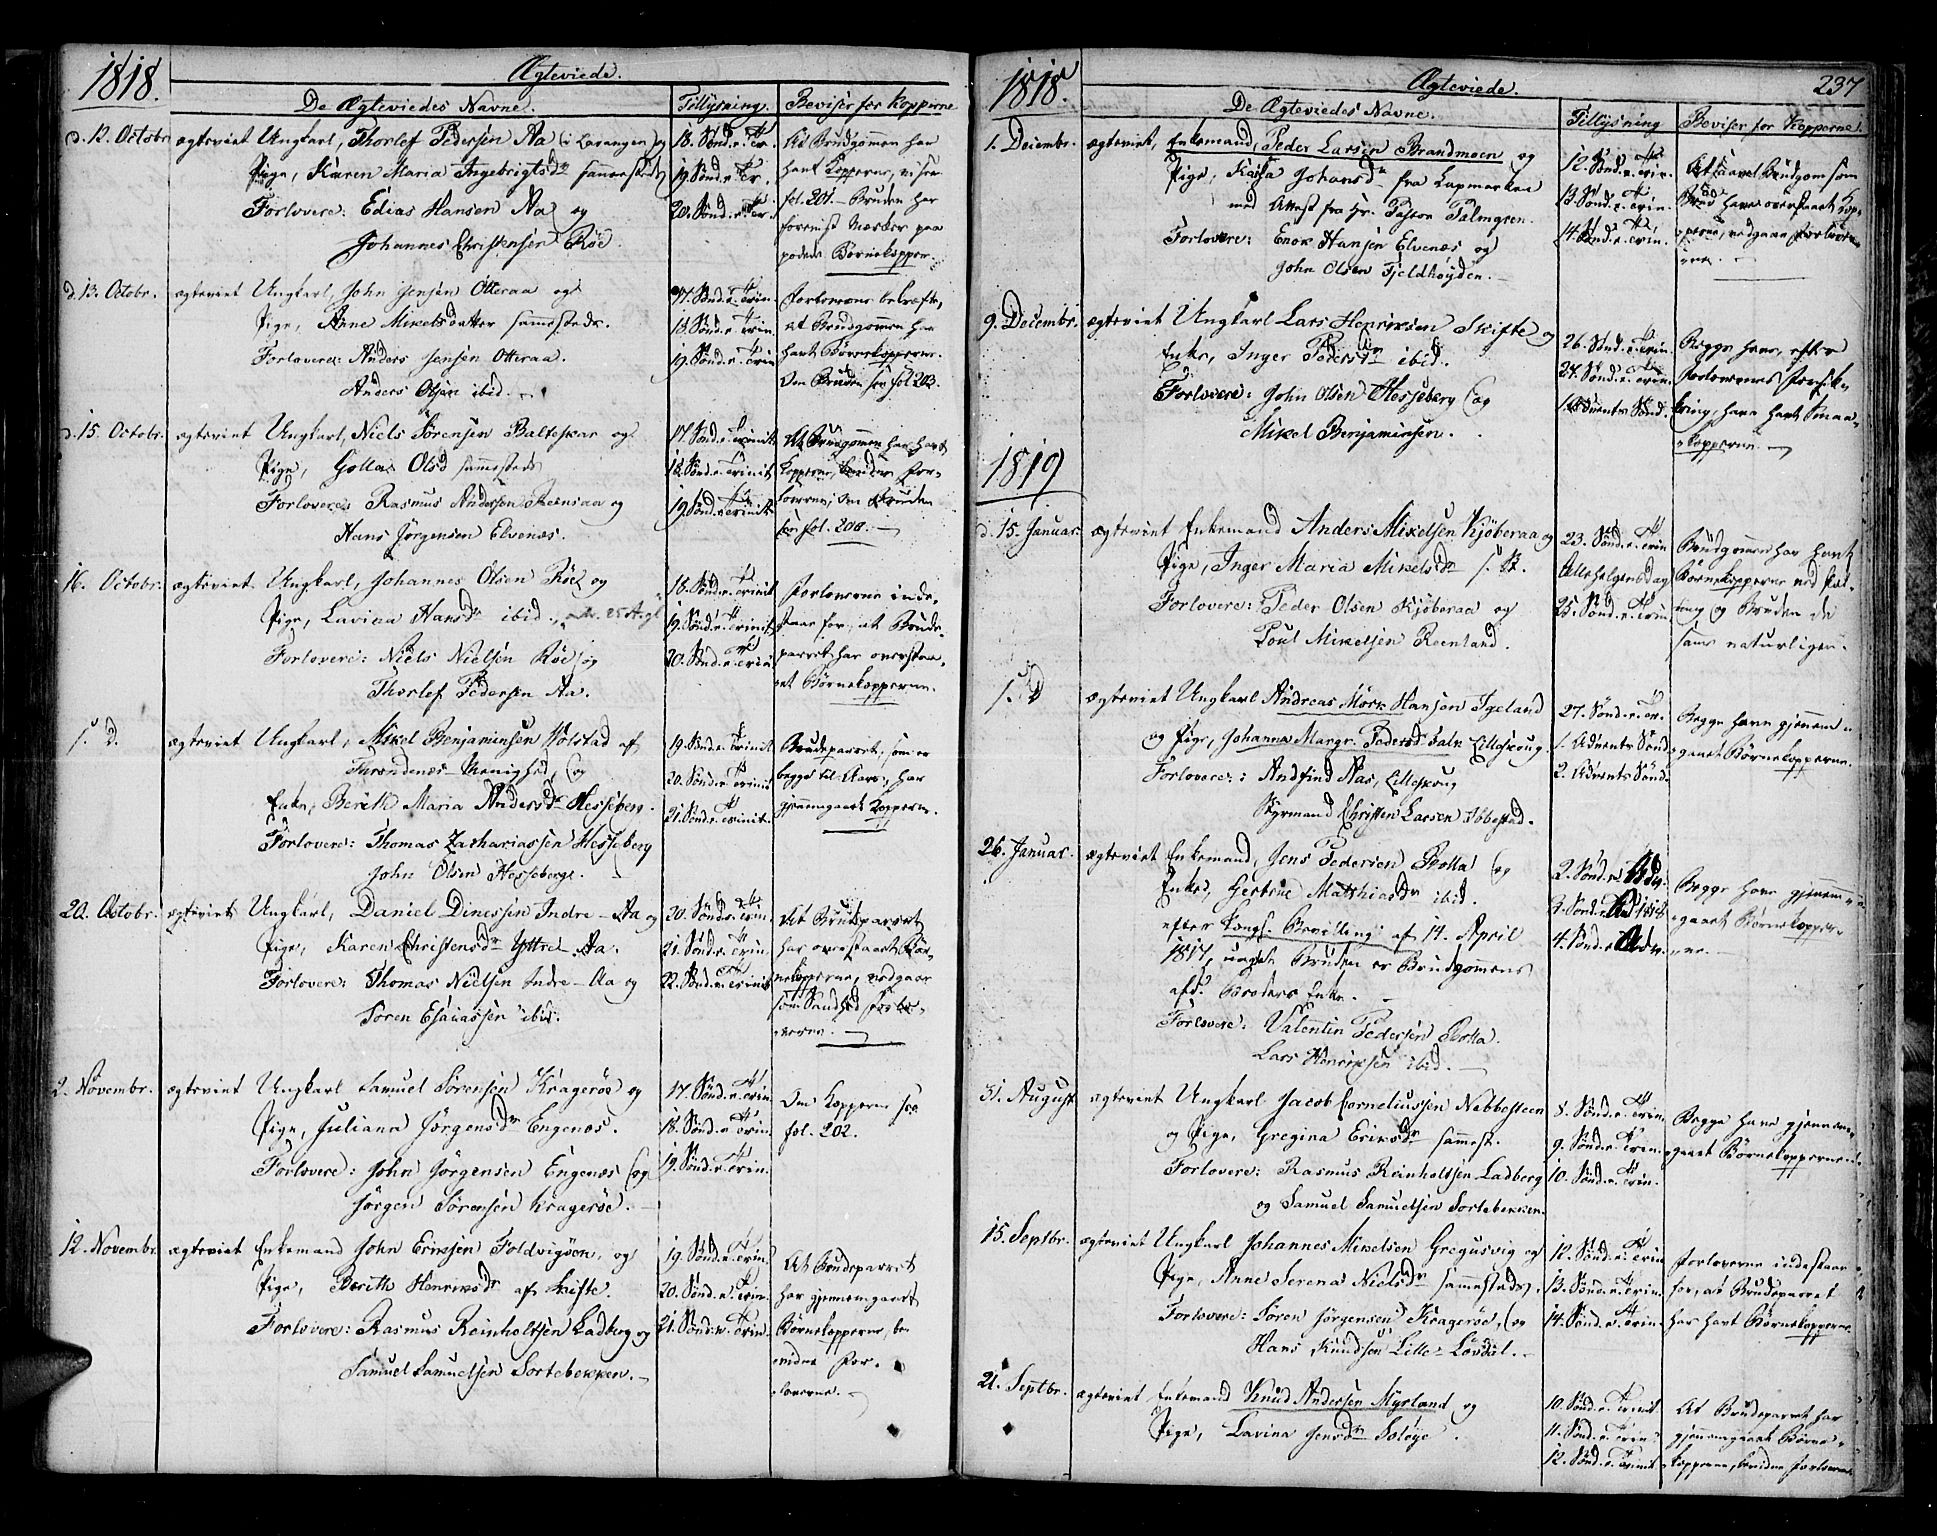 1818.
Ægteviede.
De Ægteviedes Navne.
Tillysning.
Beviser for Kopperne
d. 12. Octobr. ægteviet Ungkarl, Thorlef Pedersen Aa (i Lavangen) og
Pige, Karen Maria Ingebrigtsdr sammesteds
Forlovere: Edias Hansen Aa og
Johannes Christensen Röe.
18. Sönd. e. Tr.
19. Sönd. e. Tr.
20. Sönd. e. Tr.
At Brudgommen har
havt Kopperne, vi
fol. 201. Bruden har
Mærker paa
Börnekopper
d. 13. Octobr. ægteviet Ungkarl, John Jensen Otteraa og
Pige, Anne Mikelsdatter sammesteds.
Forlovere: Anders Jensen Otteraa.
Anders Olsen ibid.
17. Sönd. e. Trin.
18. Sönd. e. Trin.
19. Sönd. e. Trin.
Forloverne bekræfte,
at Brudgommen har
havt Börnekopperne.
Om Bruden see fol 203.
d. 15. Octobr. ægteviet Ungkarl, Niels Sörensen Balteskar og
Pige, Gollas Olsd sammesteds
Forlovere Rasmus Andersen Reensaa og
Hans Jörgensen Elvenæs.
17. Sönd. e. Trinit
18. Sönd. e. Trinit
19. Sönd. e. Trinit.
At Brudgomen har havt
Kopperne, For-
loverne; om Bruden
see fol. 200.
16. Octobr. ægteviet Ungkarl, Johannes Olsen Röe og
Pige, Lavina Hansdr ibid., 25 A. gl
Forlovere: Niels Nielsen Röe og
Thorlef Pedersen Aa.
18. Sönd. e. Trinit
19. Sönd. e. Trinit.
20. Sönd. e. Trinit
Forloverne inde-
staae for, at Brude-
parret har overstaa-
et Börnekopperne.
s. D. ægteviet Ungkarl, Mikel Benjaminsen Volstad af
Throndenæs Menighed, og
Enke, Berith Maria Andersdr Hesseberg.
Forlovere: Thomas Zachariassen Hesseberg
John Olsen Hesseberg.
19. Sönd. e. Trinit
20. Sönd. e. Trinit
21. Sönd. e. Trinit.
Brudeparret, som er
begge til Aars, har
gjennemgaaet Kopperne.
20. Octobr. ægteviet Ungkarl, Daniel Dinessen Indre-Aa og
Pige, Karen Christensdr Yttre Aa.
Forlovere: Thomas Nielsen Indre-Aa og
Sören Esaiassen ibid.
20. Sönd. e. Trin.
21. Sönd. e. Trin.
22. Sönd. e. Trinit
At Brudeparret
har overstaaet Bör-
nekopperne, vedgaae
som Sandhed Forlo-
verne.
2. Novembr. ægteviet Ungkarl Samuel Sörensen Krageröe og
Pige, Juliana Jörgensdr Engenæs.
Forlovere: John Jörgensen Engenæs og
Jörgen Sörensen Krageröe.
17. Sönd. e. Trin.
18. Sönd. e. Trin.
19. Sönd. e. Trin.
Om Kopperne see
fol. 202.
12. Novembr. ægteviet Enkemand John Eriksen Foldvigöen, og
Pige, Berith Henriksdr af Skifte.
Forlovere: Rasmus Reinholtsen Ladberg og
Samuel Samuelsen Sortebekken.
19. Sönd. e. Trin.
20. Sönd. e. Trin.
21. Sönd. e. Trin.
At Brudeparret
har gjennemgaaet
Börnekopperne, be-
vidne For-
loverne.
1818.
Ægteviede.
237
De Ægteviedes Navne.
Tillysning
Beviser for Kopperne.
1. Decembr. ægteviet, Enkemand, Peder Larsen Brandmoen og
Pige, Kaisa Johansdr fra Lapmarken
med Attest fra Hr. Pastor Palmgren.
Forlovere: Enok Hansen Elvenæs og
John Olsen Fjeldhöyden.
12. Sönd. e. Trin.
13. Sönd. e. Trin.
14. Sönd. e. Trin.
At saavel Brudgom som
Brud have overstaaet Kop-
perne, vedgaae Forlover-
ne.
9. Decembr. ægteviet Ungkarl Lars Henriksen Skifte og
Enke, Inger Pedersdr ibid.
Forlovere: John Olsen Hesseberg og
Mikel Benjaminsen.
26. Sönd. e. Trin.
27. Sönd. e. Trin.
1. Advents Sönd.
Begge have, efter
Forlovernes Forsik-
kring, have havt Smaa-
kopperne.
1819
d. 15. Januar. ægteviet Enkemand Anders Mikelsen Kjöberaa og
Pige, Inger Maria Mikelsdr s. St.
Forlovere: Peder Olsen Kjöberaa og
Poul Mikelsen Reenland.
23. Sönd. e. Trin
Allehelgensdag
25. Sönd. e. Trin.
Brudgommen har havt
Börnekopperne ved
og Bruden de
naturlige
s. D ægteviet Ungkarl Andreas Mörk Hansen Igeland
og Pige, Johanna Margr. Pedersd Falk Lilleskoug
Forlovere: Andfind Aas, Lilleskoug
Styrmand Christen Larsen Ibbestad.
27. Sönd. e. Tr.
1. Advents Sönd
2. Advents Sönd.
Begge have gjennem-
gaaet Börnekopperne.
26. Januar. ægteviet Enkemand, Jens Pedersen Rotta og
Enke, Gertrue Matthiasdr ibid.
efter Kongl. Bevilling af 14. April
1817, Bruden er Brudgomens
afd. Broders Enke.
Forlovere: Valentin Pedersen Rotta.
Lars Henriksen ibid.
2. Sönd. e. Adv.
3. Sönd. e. Adv 1818
4. Sönd. e. Adv.
Begge have gjennem-
gaaet Börnekopper-
ne.
31. August ægteviet Ungkarl Jacob Corneliussen Nebbesteen
og Pige, Gregina Eriksdr sammest.
Forlovere: Rasmus Reinholtsen Ladberg
og Samuel Samuelsen Sortebekken.
8. Sönd. e. Trin.
9. Sönd. e. Trin.
10. Sönd. e. Trin.
Begge have gjennem-
gaaet Börnekopperne.
15. Septbr. ægteviet Ungkarl Johannes Mikelsen Gregusvig og
Pige, Anne Serena Nielsdr sammesteds.
Forlovere: Sören Jörgensen Krageröe, og
Hans Knudsen Lille-Lövdal.
12. Sönd. e. Trin
13. Sönd. e. Trin.
14. Sönd. e. Trin.
Forloverne indestaae
for, at Brudeparret
har havt Börnekopperne.
21. Septbr. ægteviet Enkemand Knud Andersen Myrland og
Pige, Lavina Jensdr Solöye.
10. Sönd. e. Trinit
11. Sönd. e. Trin.
12. Sönd. e. Trinit
At Brudeparret har
gjennemgaaet Börne-
kopperne, bevidne Forloverne